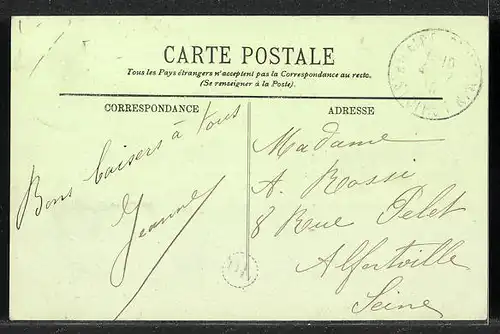 CARTE POSTALE
Tous les Pays étrangers n'acceptent pas la Correspondance au recto.
(Se renseigner à la Poste).
CORRESPONDANCE
Bons baisers à tous
Jeanne
ADRESSE
Madame
A. Rossi
8 Rue Pelet
Alfortville
Seine